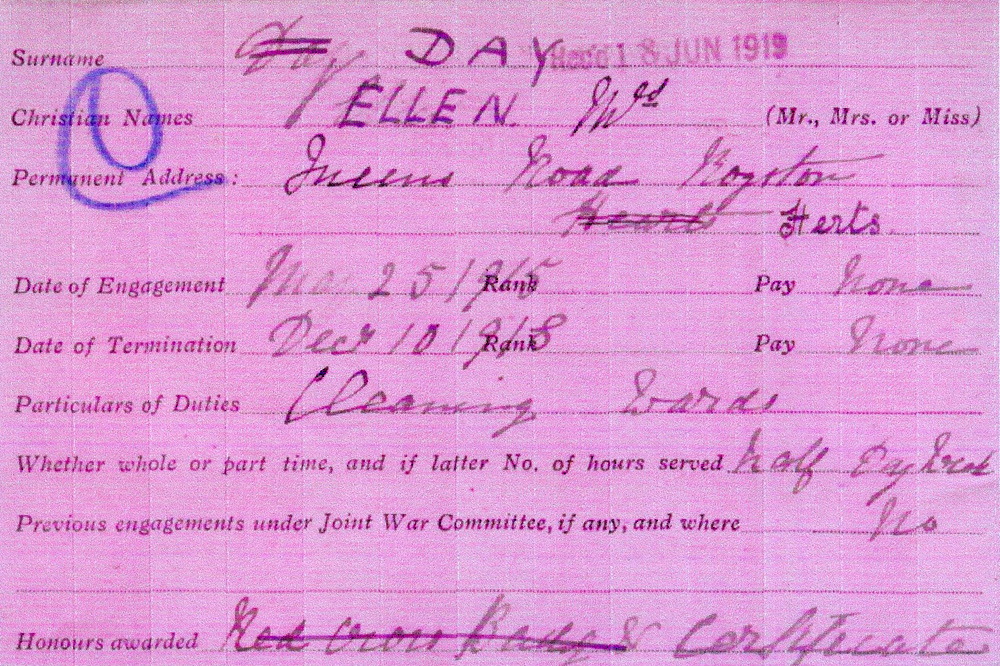 Surname Day DAY Recd 18 JUN 1919
Christian Names ELLEN. (Mr., Mrs. or Miss)
Permanent Address: Queens Road Royston
Hearts Herts.
Date of Engagement Mar 25 1915 Rank Pay None
Date of Termination Decr 10 1918 Rank Pay None
Particulars of Duties Cleaning Wards
Whether whole or part time, and if latter No. of hours served half Day
Previous engagements under Joint War Committee, if any, and where No
Honours awarded Red Cross Badge & Certificate